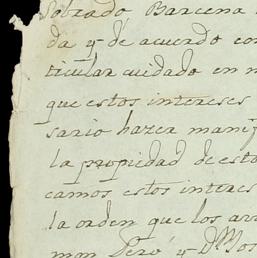 Sobrado Barcena
da y de acuerdo con
ticular cuidado en n
que estos intereses
sario hazer manif
la propiedad de esto
camos estos interes
la orden que los arr
mon Pero y Dn Jos